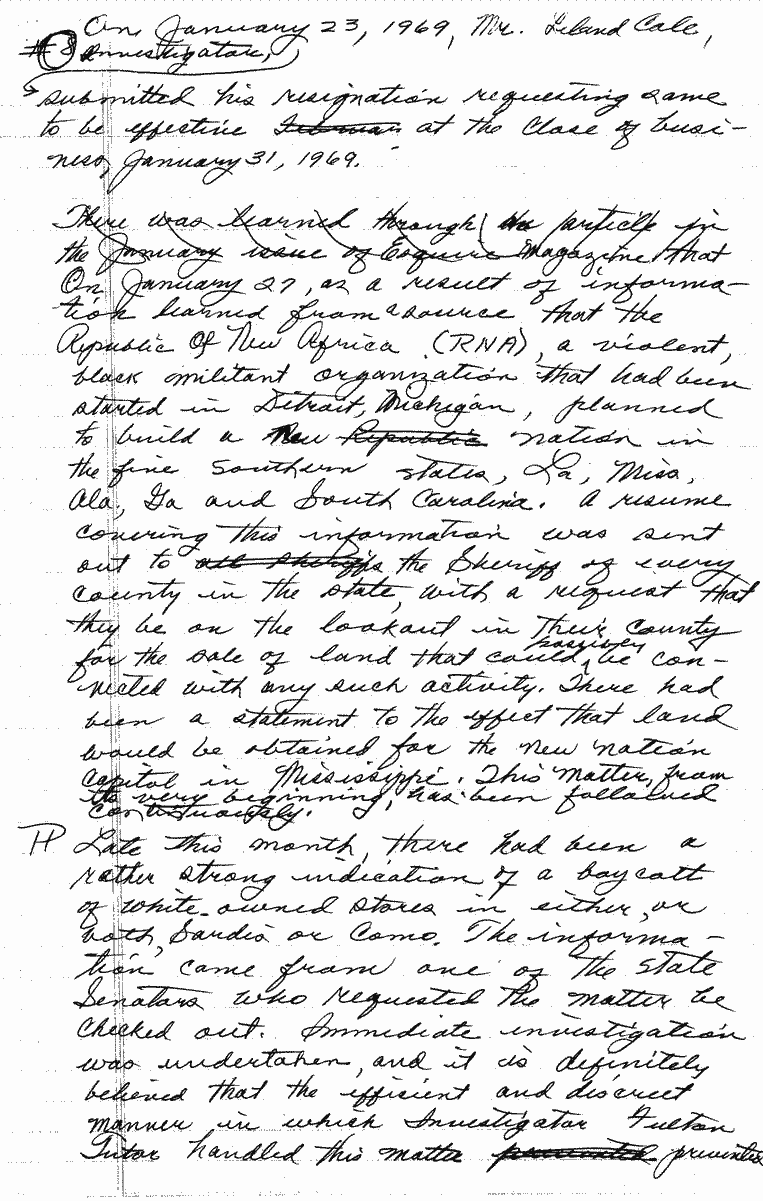 On January 23, 1969, Mr. Leland Cole,
#8 Investigator,
submitted his resignation requesting same
to be effective at the close of busi-
ness, January 31, 1969.
There was learned through an article in
the January issue of Esquire Magazine that
On January 27, as a result of informa-
tion learned from a source that the
Republic Of New Africa (RNA), a violent,
black militant organization that had been
started in Detroit, Michigan, planned
to build a new Republic nation in
the five Southern states, La, Miss,
Ala, Ga and South Carolina. A resume
covering this information was sent
out to all sheriffs the Sheriff of every
county in the state, with a request that
they be on the lookout in their county
possibly
for the sale of land that could be con-
nected with any such activity. There had
been a statement to the effect that land
would be obtained for the new nation
capitol in Mississippi. This matter, from
its very beginning, has been followed
continuously.
Late this month, there had been a
rather strong indication of a boycott
of white-owned stores in either, or
both, Sardis or Como. The informa-
tion came from one of the State
Senators who requested the matter be
checked out. Immediate investigation
was undertaken, and it is definitely
believed that the efficient and discreet
manner in which Investigator Fulton
Tutor handled this matter prevented prevented